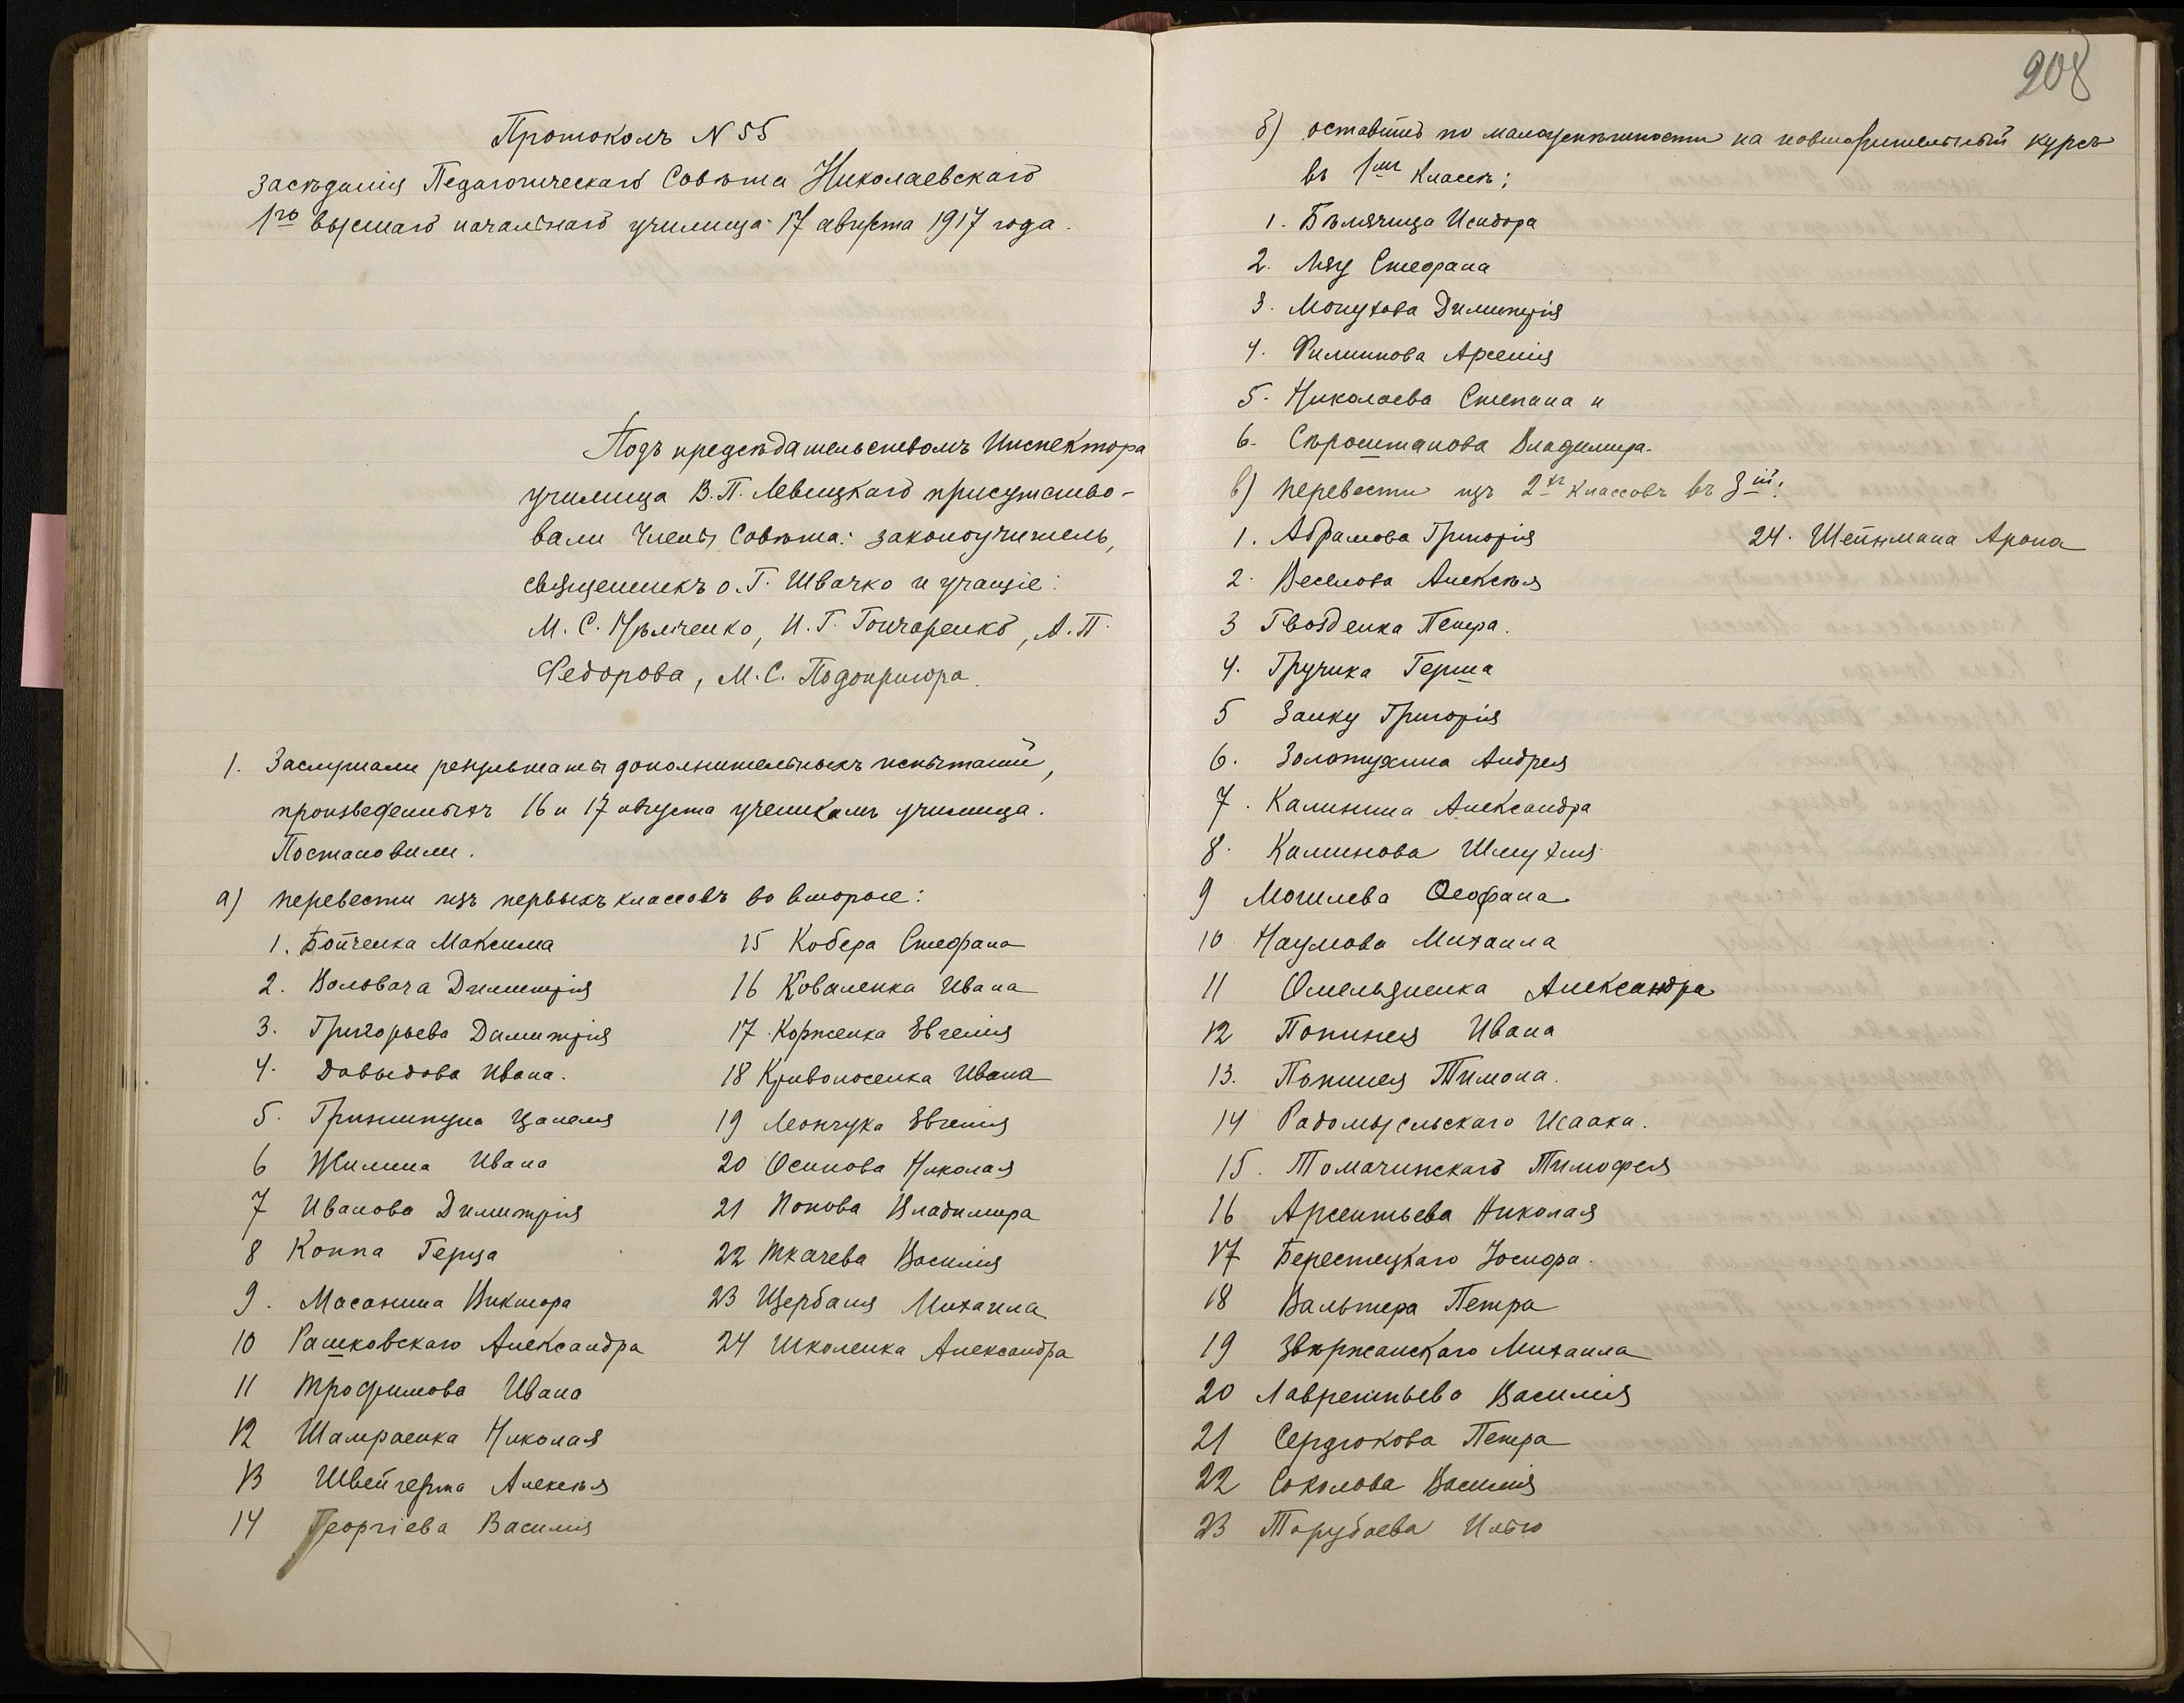 Протоколъ N 55
засѣданія Педагогическаго Совѣта Николаевскаго
1го высшаго начальнаго училища 17 августа 1917 года.
Подъ предсѣдательствомъ Инспектора
училища В.П. Левицкаго присутство-
вали Члены Совѣта: законоучитель,
священникъ о. Г. Швачко и учащіе:
М. С. Нѣлченко, И. Г. Гончаренко, А. П.
Федорова, М. С. Подопригора.
1. Заслушали результаты дополнительныхъ испытаній,
произведенныхъ 16 и 17 августа ученикамъ училища.
Постановили.
а) перевести изъ первыхъ классовъ во вторые:
1. Бойченка Максима
2. Воловача Димитрія
3. Григорьева Димитрія
4. Давыдова Ивана.
5. Гриншпуна
6 Жилина Ивана
7 Иванова Димитрія
8 Коппа Герца
9. Масанина Виктора
10 Рашковскаго Александра
11 Трофимова Ивана
12 Шамраенка Николая
13 Алексѣя
14 Георгіева Василія
15 Кобера Стефана
16 Коваленка Ивана
17 Корженка Евгенія
18 Кривоносенка Ивана
19 Леончука Евгенія
20 Осипова Николая
21 Попова Владимира
22 Ткачева Василія
23 Щербаня Михаила
24 Школенка Александра
208
б) оставить по малоуспѣшности на повторительный курсъ
въ 1мъ классѣ:
1. Исидора
2. Стефана
3. Димитрія
4. Филиппова Арсенія
5. Николаева Степана и
6. Сѣроштанова Владимира.
в) перевести изъ 2хъ классовъ въ 3ій:
1. Абрамова Григорія
2. Веселова Алексѣя
3 Гвозденка Петра.
4. Гручика Герша
5 Заику Григорія
6. Золотухина Андрея
7. Калинина Александра
8. Калинова Шмухля
9 Могилева Ѳеофана
10 Наумова Михаила
11 Омельяненка Александра
12 Попинея Ивана
13. Попинея Тимона.
14 Радомысльскаго Исаака.
15. Томачинскаго Тимофея
16 Арсентьева Николая
17 Берестецкаго Іосифа.
18 Вальтера Петра
19 Звѣржанскаго Михаила
20 Лаврентьева Василія
21 Сердюкова Петра
22 Соколова Василія
23 Торубаева Илью
24. Шейнмана Арона